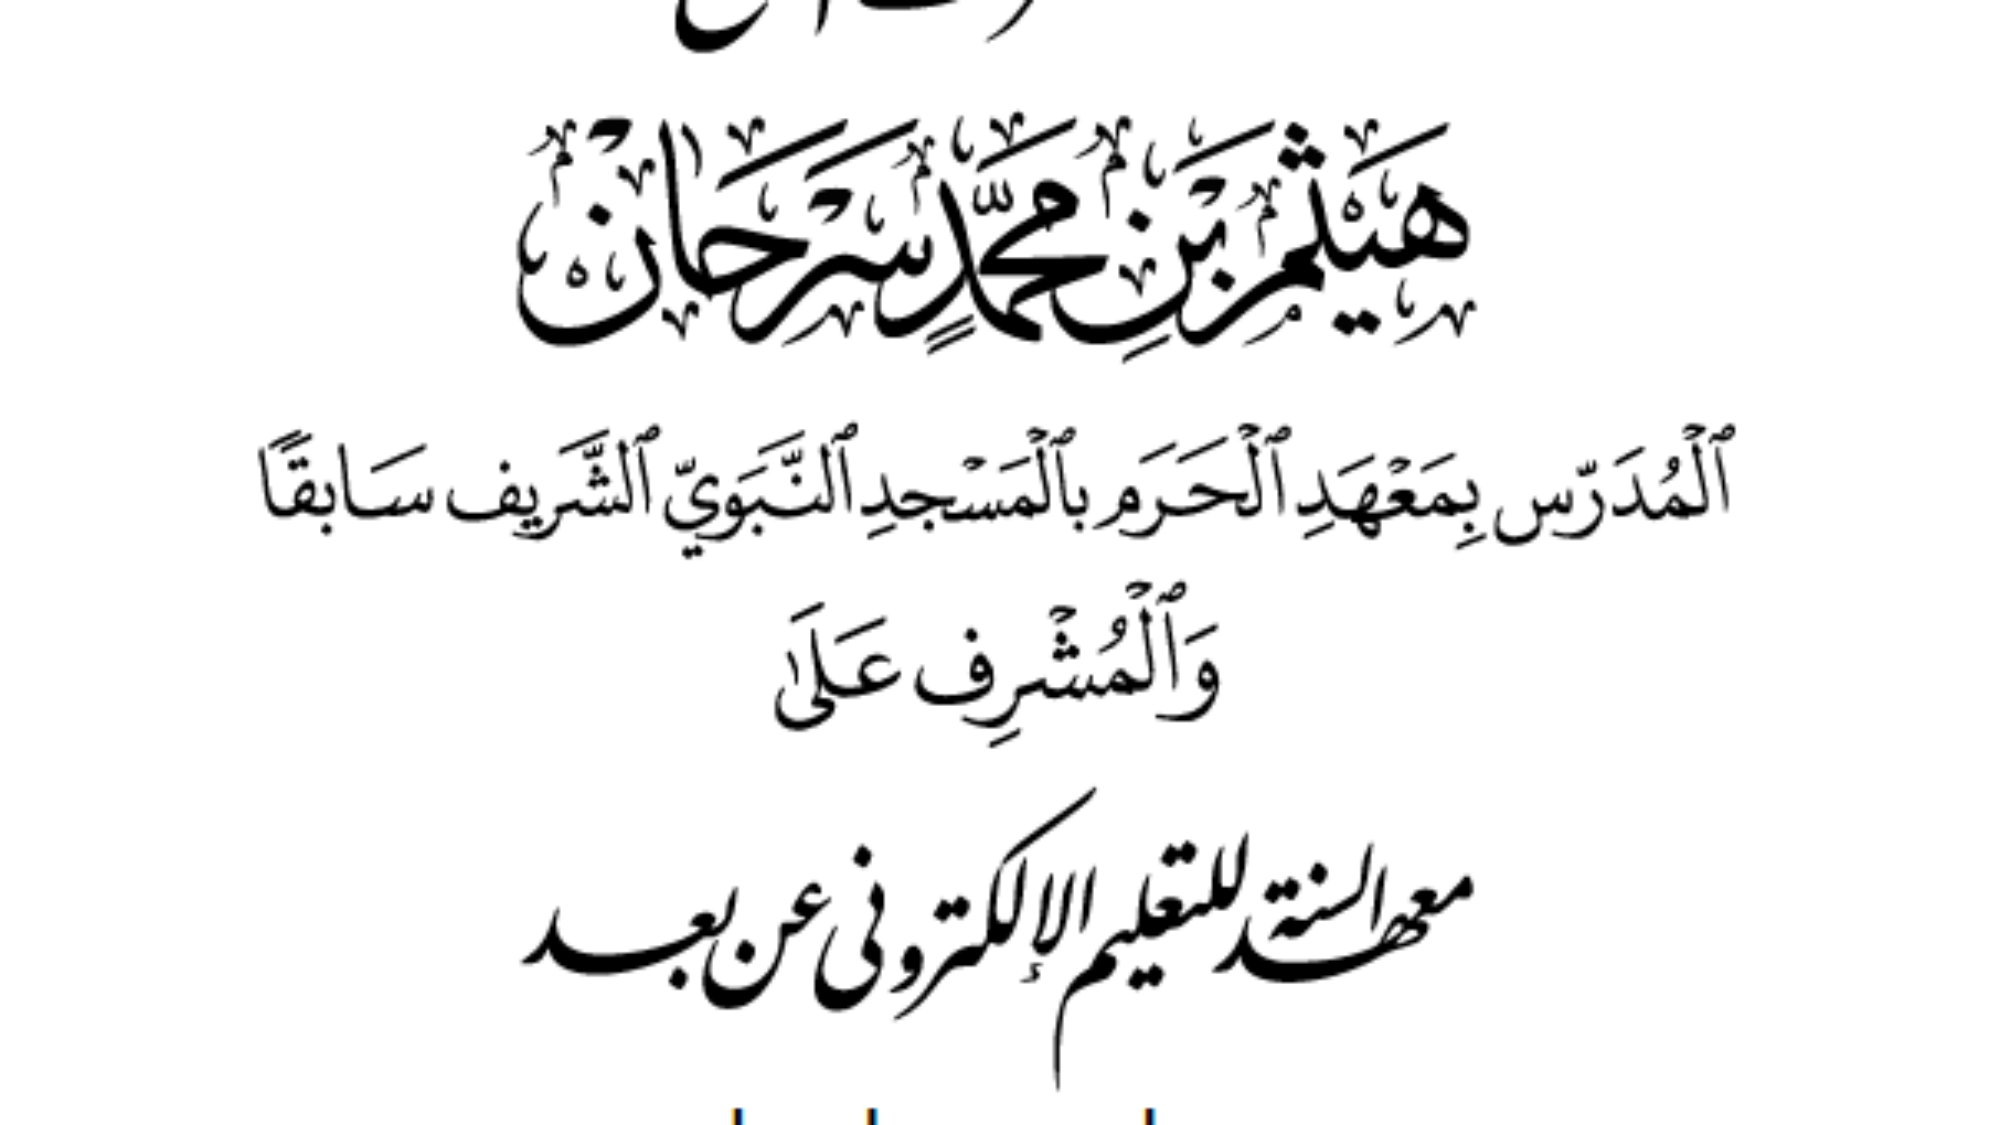 هَيْثَمِ بْنِ مُحَمَّدٍ سَرْحَان
ٱلْمُدَرّس بِمَعْهَدِ ٱلْحَرَم بِٱلْمَسْجدِ ٱلنَّبَويّ ٱلشَّريف سَابقًا
وَٱلْمُشْرِف عَلَىٰ
معهد السنة للتعليم الإلكتروني عن بعد